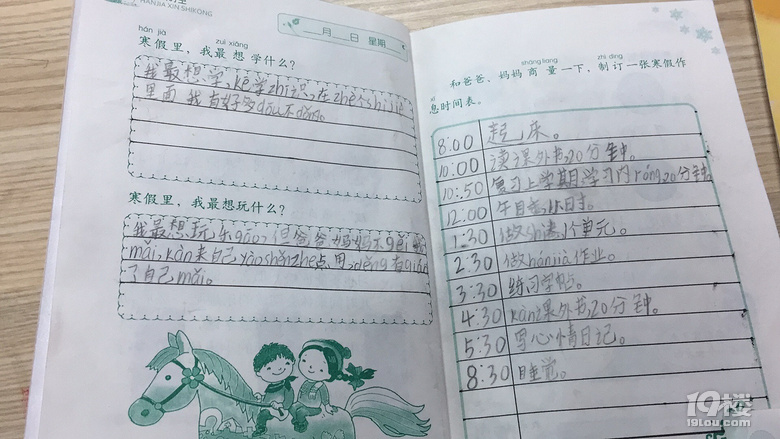 HANJIA XIN SHIKONG
月 日 星期
hán jià zuì xiǎng
寒假里，我最想学什么？
我最想学kē学zhī识，在zhè个shì jiè
里面我有好多dōu不dǒng。
寒假里，我最想玩什么？
我最想玩乐gāo，但爸爸妈妈不gěi
mǎi，kàn来自己yào shěng zhe点用，děng有qián
了自己mǎi。
shāng liang zhì dìng
和爸爸、妈妈商量一下，制订一张寒假作
xī
息时间表。
8:00 起床。
10:00 读课外书20分钟。
10:50 复习上学期学习内róng20分钟。
12:00 午
1:30 做 1个单元。
2:30 做hán jià作业。
3:30 练习字帖。
4:30 kàn课外书20分钟。
5:30 写心情日记。
8:30 睡觉。
19楼
19lou.com